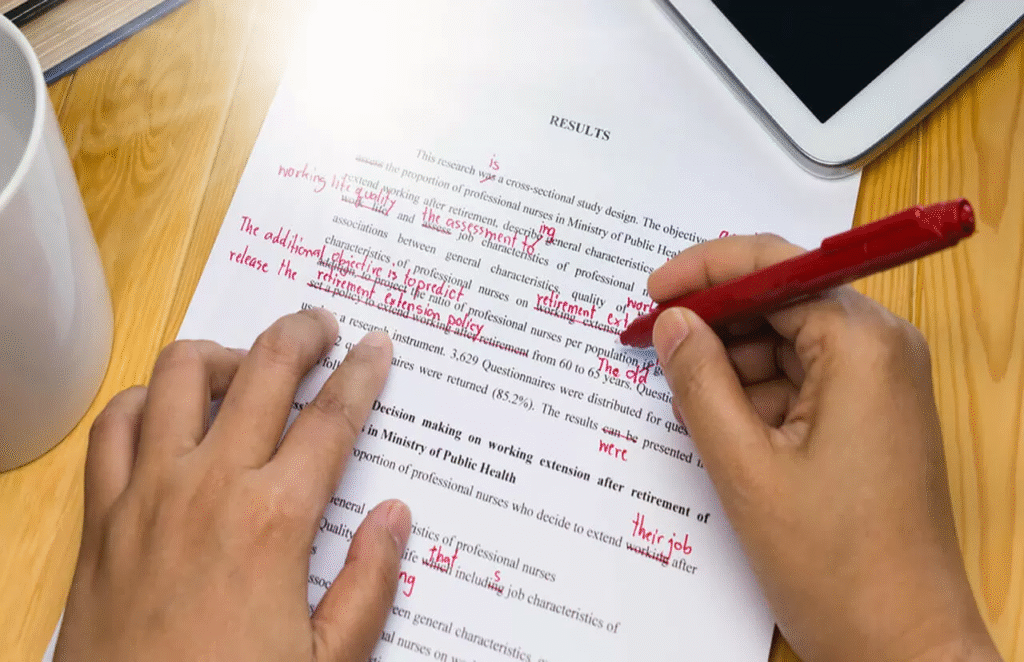 RESULTS
is
This research was a cross-sectional study design. The objective
assess the proportion of professional nurses in Ministry of Public Heal
working life quality
extend working after retirement, describe general characteristics
ing
work life and assess job characteristics of professional
the assessment to
associations between general characteristics, quality of
work
characteristics of professional nurses on working extens
retirement ext
The additional objective is to predict
project the ratio of professional nurses per population
release the retirement extension policy
set a policy to extend working after retirement from 60 to 65 years. Questi
The old
a research instrument. 3,629 Questionnaires were distributed for
aires were returned (85.2%). The results can be presented
were
Decision making on working extension after retirement of
in Ministry of Public Health
oportion of professional nurses who decide to extend working after
their job
eneral
ristics of professional nurses
Quality
ife which including job characteristics of
that
s
een general characteristics,
nal nurses on